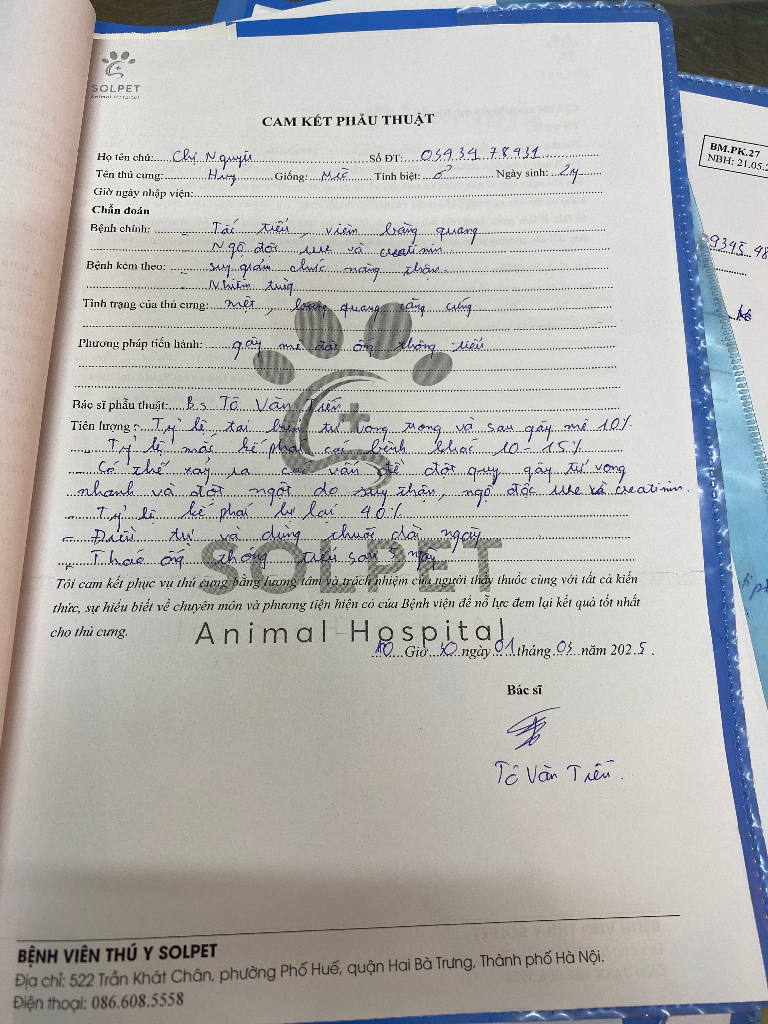 SOLPET
Animal Hospital
CAM KẾT PHẪU THUẬT
BM.PK.27
NBH: 21.05.2
Họ tên chủ: Chị Nguyệt Số ĐT: 03939 78931
Tên thú cưng: Huy Giống: Mèo Tính biệt: ♂ Ngày sinh: 2y
Giờ ngày nhập viện:
Chẩn đoán
Bệnh chính: Tắc tiểu, viêm bàng quang
Ngộ độc ure và creatinin
Bệnh kèm theo: suy giảm chức năng thận
Nhiễm trùng
Tình trạng của thú cưng: mệt, bàng quang căng cứng
Phương pháp tiến hành: gây mê đặt ống thông tiểu
Bác sĩ phẫu thuật: Bs Tô Văn Tiến
Tiên lượng: - Tỷ lệ tai biến tử vong trong và sau gây mê 10%
- Tỷ lệ mắc kế phát các bệnh khác 10-15%
- Có thể xảy ra các vấn đề đột quỵ gây tử vong
nhanh và đột ngột do suy thận, ngộ độc ure và creatinin.
- Tỷ lệ kế phát bị lại 40%
- Điều trị và dùng thuốc dài ngày
- Tháo ống thông tiểu sau 5 ngày
SOLPET
Tôi cam kết phục vụ thú cưng bằng lương tâm và trách nhiệm của người thầy thuốc cùng với tất cả kiến
thức, sự hiểu biết về chuyên môn và phương tiện hiện có của Bệnh viện để nỗ lực đem lại kết quả tốt nhất
cho thú cưng.
Animal Hospital
10 Giờ 30 ngày 01 tháng 03 năm 2025.
Bác sĩ
Tô Văn Tiến.
BỆNH VIỆN THÚ Y SOLPET
Địa chỉ: 522 Trần Khát Chân, phường Phố Huế, quận Hai Bà Trưng, Thành phố Hà Nội.
Điện thoại: 086.608.5558